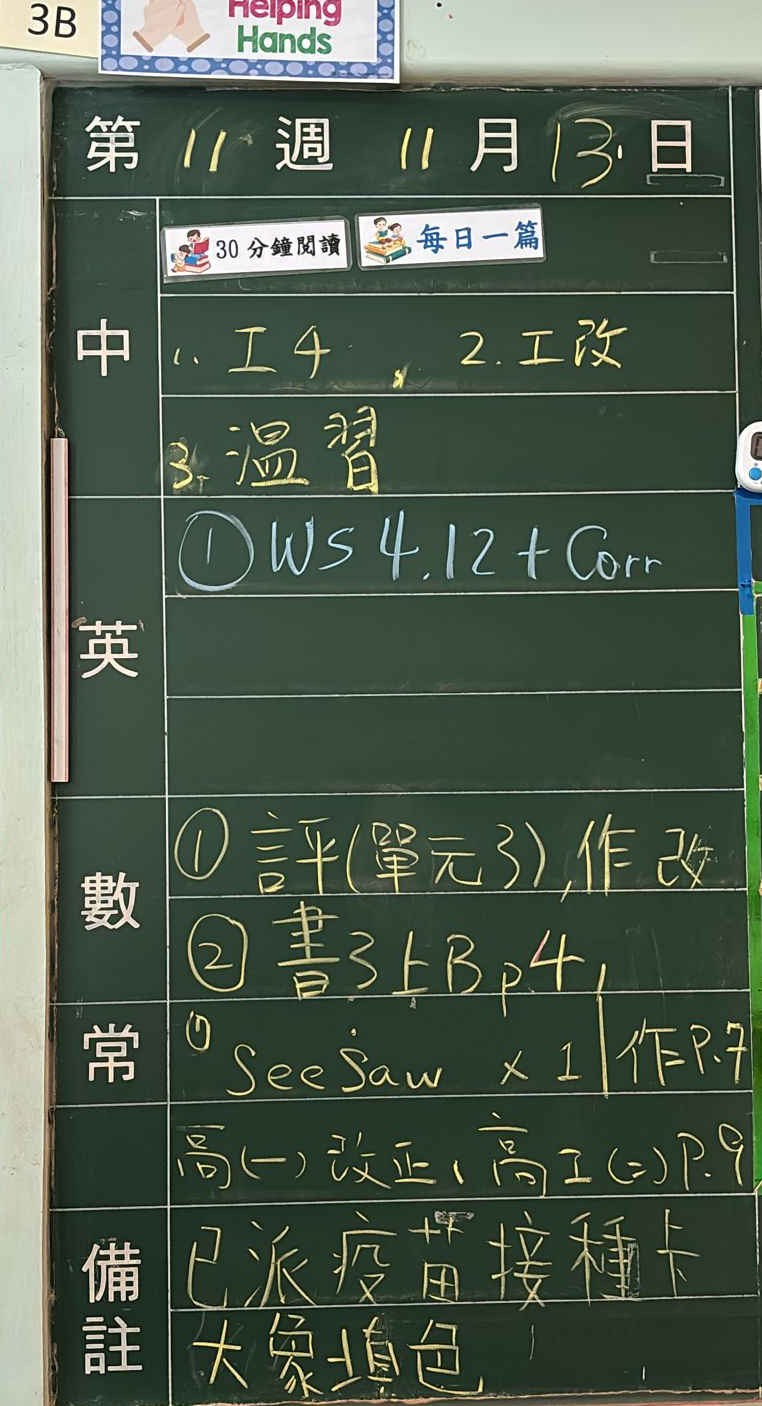 3B
Helping
Hands
第 11 週 11 月 13 日
30 分鐘閱讀 每日一篇
中
1. 工4 , 2. 工改
3. 温習
英
① WS 4.12 + Corr
數
① 評(單元3), 作改
② 書3上B p4,
常
① SeeSaw x 1 | 作P.7
高(一)改正、高工(二)P.9
備註
已派疫苗接種卡
大象填色